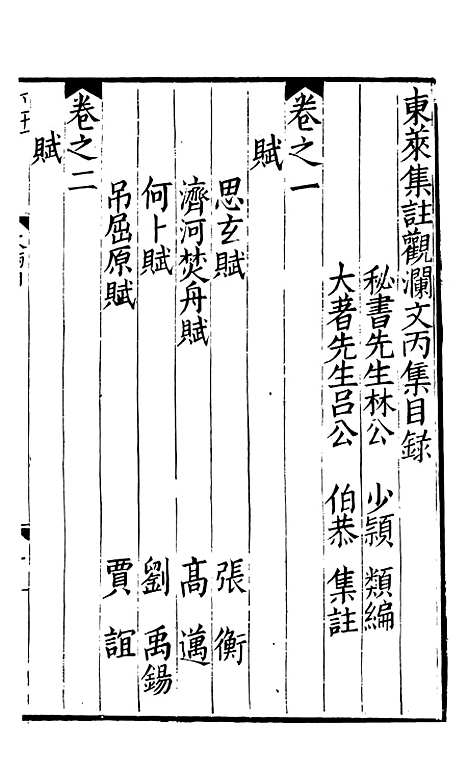 東萊集註觀瀾文丙集目録
秘書先生林公 少頴 類編
大著先生吕公 伯恭 集註
卷之一
賦
思玄賦 張衡
濟河焚舟賦 髙邁
何卜賦 劉禹錫
吊屈原賦 賈誼
卷之二
賦